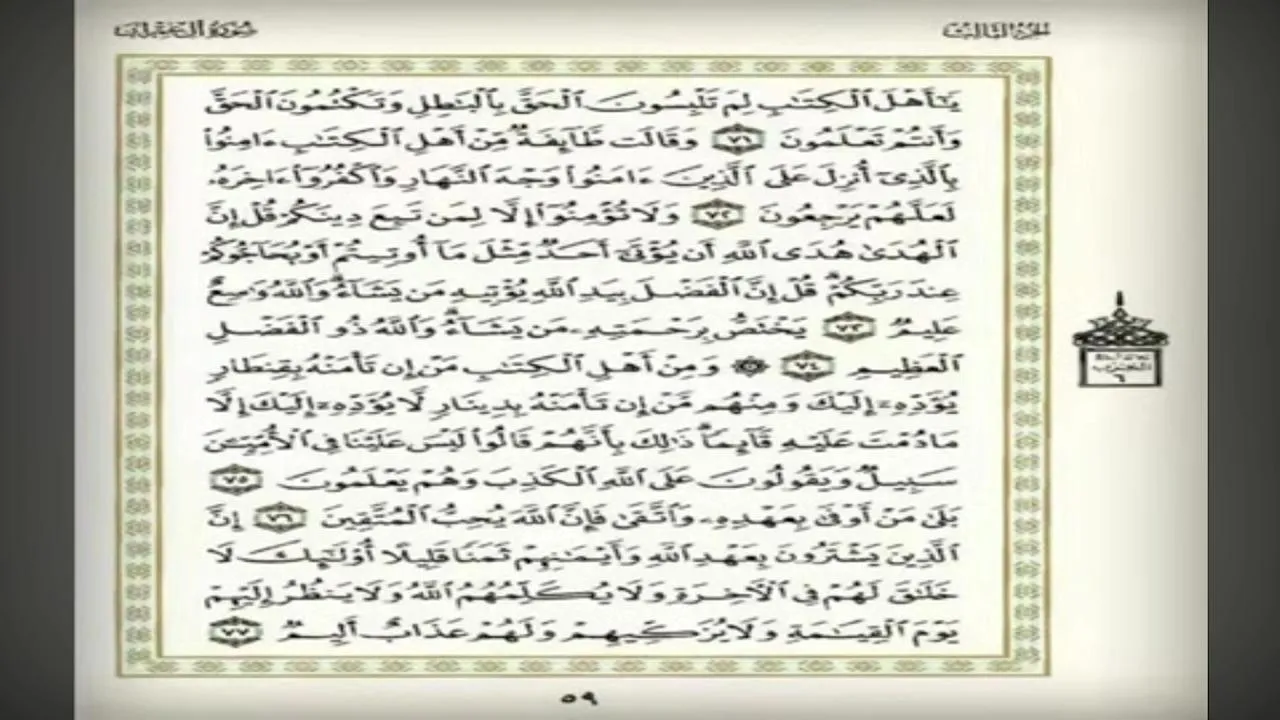 الجزء الثالث
سورة آل عمران
يَٰٓأَهْلَ ٱلْكِتَٰبِ لِمَ تَلْبِسُونَ ٱلْحَقَّ بِٱلْبَٰطِلِ وَتَكْتُمُونَ ٱلْحَقَّ
وَأَنتُمْ تَعْلَمُونَ ٧١ وَقَالَت طَّآئِفَةٌ مِّنْ أَهْلِ ٱلْكِتَٰبِ ءَامِنُوا۟
بِٱلَّذِىٓ أُنزِلَ عَلَى ٱلَّذِينَ ءَامَنُوا۟ وَجْهَ ٱلنَّهَارِ وَٱكْفُرُوٓا۟ ءَاخِرَهُۥ
لَعَلَّهُمْ يَرْجِعُونَ ٧٢ وَلَا تُؤْمِنُوٓا۟ إِلَّا لِمَن تَبِعَ دِينَكُمْ قُلْ إِنَّ
ٱلْهُدَىٰ هُدَى ٱللَّهِ أَن يُؤْتَىٰٓ أَحَدٌ مِّثْلَ مَآ أُوتِيتُمْ أَوْ يُحَآجُّوكُمْ
عِندَ رَبِّكُمْ ۗ قُلْ إِنَّ ٱلْفَضْلَ بِيَدِ ٱللَّهِ يُؤْتِيهِ مَن يَشَآءُ ۗ وَٱللَّهُ وَٰسِعٌ
عَلِيمٌ ٧٣ يَخْتَصُّ بِرَحْمَتِهِۦ مَن يَشَآءُ ۗ وَٱللَّهُ ذُو ٱلْفَضْلِ
ٱلْعَظِيمِ ٧٤ ۞ وَمِنْ أَهْلِ ٱلْكِتَٰبِ مَنْ إِن تَأْمَنْهُ بِقِنطَارٍ
يُؤَدِّهِۦٓ إِلَيْكَ وَمِنْهُم مَّنْ إِن تَأْمَنْهُ بِدِينَارٍ لَّا يُؤَدِّهِۦٓ إِلَيْكَ إِلَّا
مَا دُمْتَ عَلَيْهِ قَآئِمًا ۗ ذَٰلِكَ بِأَنَّهُمْ قَالُوا۟ لَيْسَ عَلَيْنَا فِى ٱلْأُمِّيِّـۧنَ
سَبِيلٌ وَيَقُولُونَ عَلَى ٱللَّهِ ٱلْكَذِبَ وَهُمْ يَعْلَمُونَ ٧٥
بَلَىٰ مَنْ أَوْفَىٰ بِعَهْدِهِۦ وَٱتَّقَىٰ فَإِنَّ ٱللَّهَ يُحِبُّ ٱلْمُتَّقِينَ ٧٦ إِنَّ
ٱلَّذِينَ يَشْتَرُونَ بِعَهْدِ ٱللَّهِ وَأَيْمَٰنِهِمْ ثَمَنًا قَلِيلًا أُو۟لَٰٓئِكَ لَا
خَلَٰقَ لَهُمْ فِى ٱلْأَخِرَةِ وَلَا يُكَلِّمُهُمُ ٱللَّهُ وَلَا يَنظُرُ إِلَيْهِمْ
يَوْمَ ٱلْقِيَٰمَةِ وَلَا يُزَكِّيهِمْ وَلَهُمْ عَذَابٌ أَلِيمٌ ٧٧
الحزب
٦
٥٩